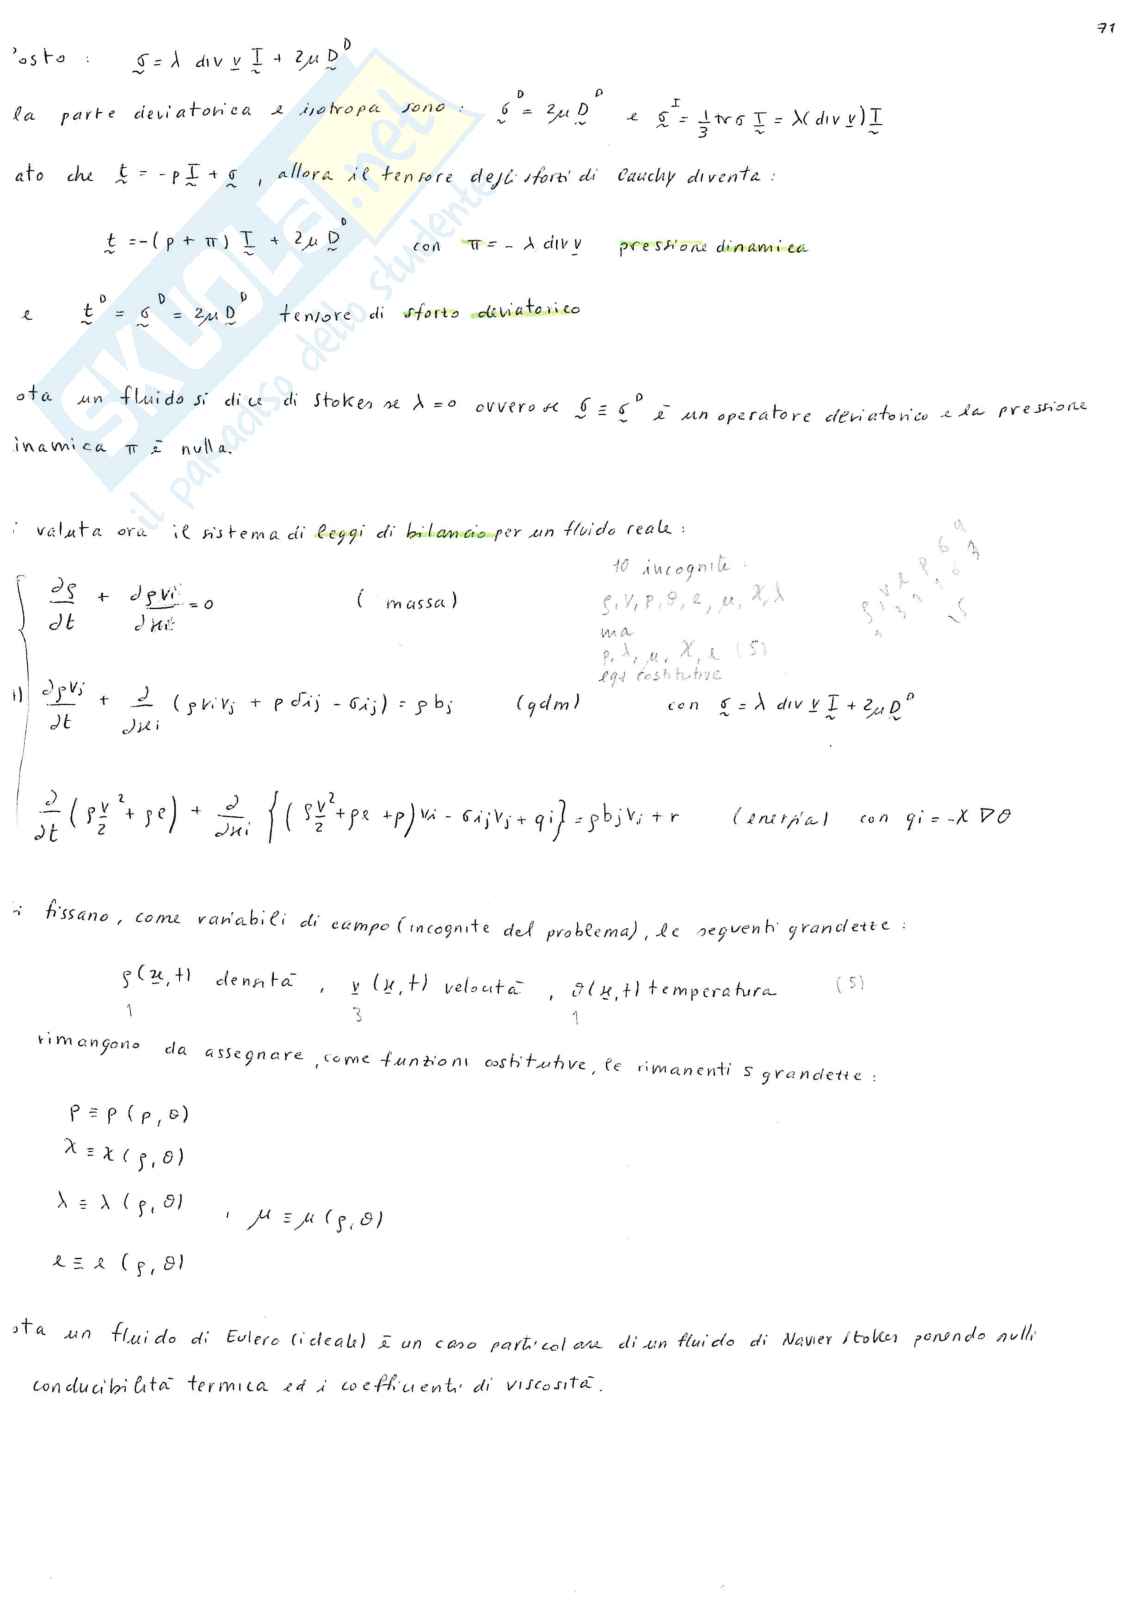 71
'osto : σ = λ div v I + 2μ D^D
la parte deviatorica e isotropa sono : σ^D = 2μ D^D e σ^I = 1/3 tr σ I = λ( div v) I
ato che t = -p I + σ , allora il tensore degli sforzi di Cauchy diventa :
t = -( p + π ) I + 2μ D^D con π = - λ div v pressione dinamica
e t^D = σ^D = 2μ D^D tensore di sforzo deviatorico
ota un fluido si dice di Stokes se λ=0 ovvero se σ ≡ σ^D è un operatore deviatorico e la pressione
inamica π è nulla.
i valuta ora il sistema di leggi di bilancio per un fluido reale :
10 incognite :
ρ, v, p, θ, e, μ, χ, λ
ma
p, λ, μ, χ, e (5)
eqs costitutive
∂ρ/∂t + ∂ρvi/∂xi = 0 ( massa)
1) ∂ρvj/∂t + ∂/∂xi (ρvivj + p δij - σij) = ρbj (qdm) con σ = λ div v I + 2μ D^D
∂/∂t (ρ v²/2 + ρe) + ∂/∂xi {(ρ v²/2 + ρe + p) vi - σij vj + qi} = ρbjvj + r (energia) con qi = -χ ∇θ
i fissano, come variabili di campo (incognite del problema), le seguenti grandezze :
ρ(x,t) densità , v (x,t) velocità , θ(x,t) temperatura (5)
1 3 1
rimangono da assegnare, come funzioni costitutive, le rimanenti 5 grandezze :
p ≡ p (ρ, θ)
χ ≡ χ (ρ, θ)
λ ≡ λ (ρ, θ) , μ ≡ μ (ρ, θ)
e ≡ e (ρ, θ)
ota un fluido di Eulero (ideale) è un caso particolare di un fluido di Navier Stokes ponendo nulli
conducibilità termica ed i coefficienti di viscosità.
SKUOLA.net
il paradiso dello studente